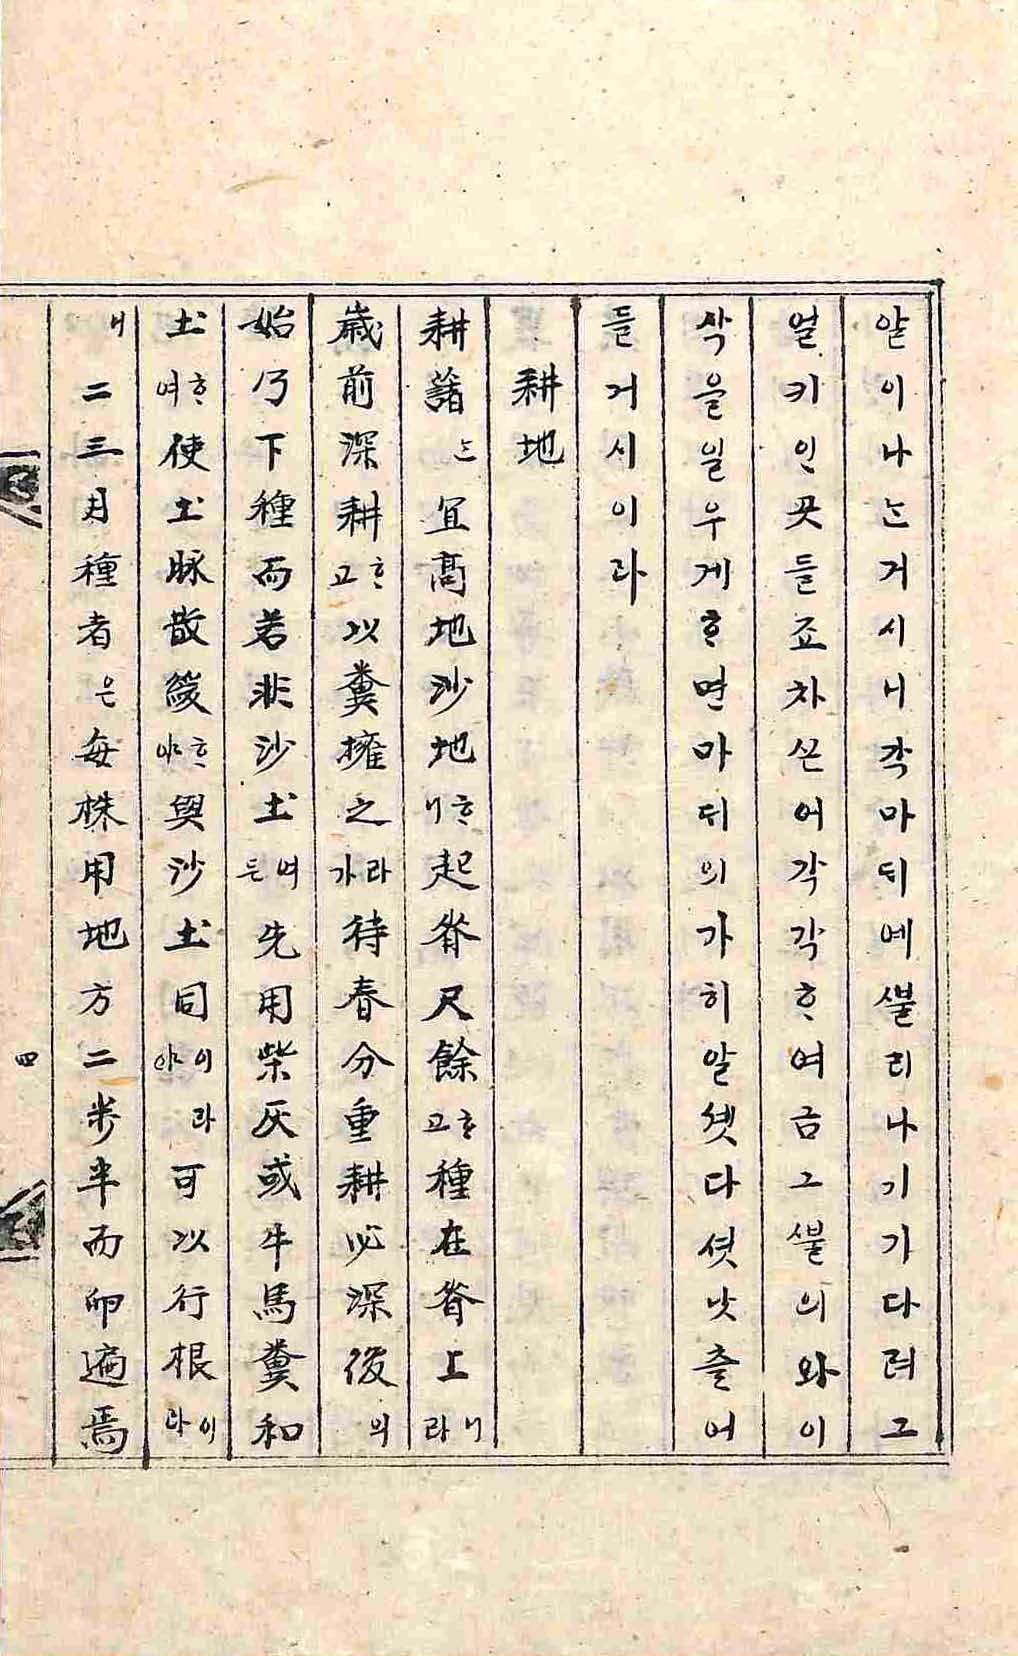 앝이나ᄂᆞᆫ거시니각마듸예ᄲᅮᆯ리나기가다려그
얼키인곳들죠차ᄭᅳᆫ어각각ᄒᆞ여금그ᄲᅮᆯ의와이
삭을일우게ᄒᆞ면마듸의가히알솃다셧낫츨어
들거시이라
耕地
耕藷ᄂᆞᆫ宜高地沙地ᄒᆞ니起脊尺餘ᄒᆞ고種在脊上니라
歲前深耕ᄒᆞ고以糞擁之라가待春分重耕必深後의
始乃下種而若非沙土여든先用柴灰或牛馬糞和
土ᄒᆞ여使土脉散緩ᄒᆞ야與沙土同이라야可以行根이라
니二三月種者은每株用地方二步半而卵遍焉
四